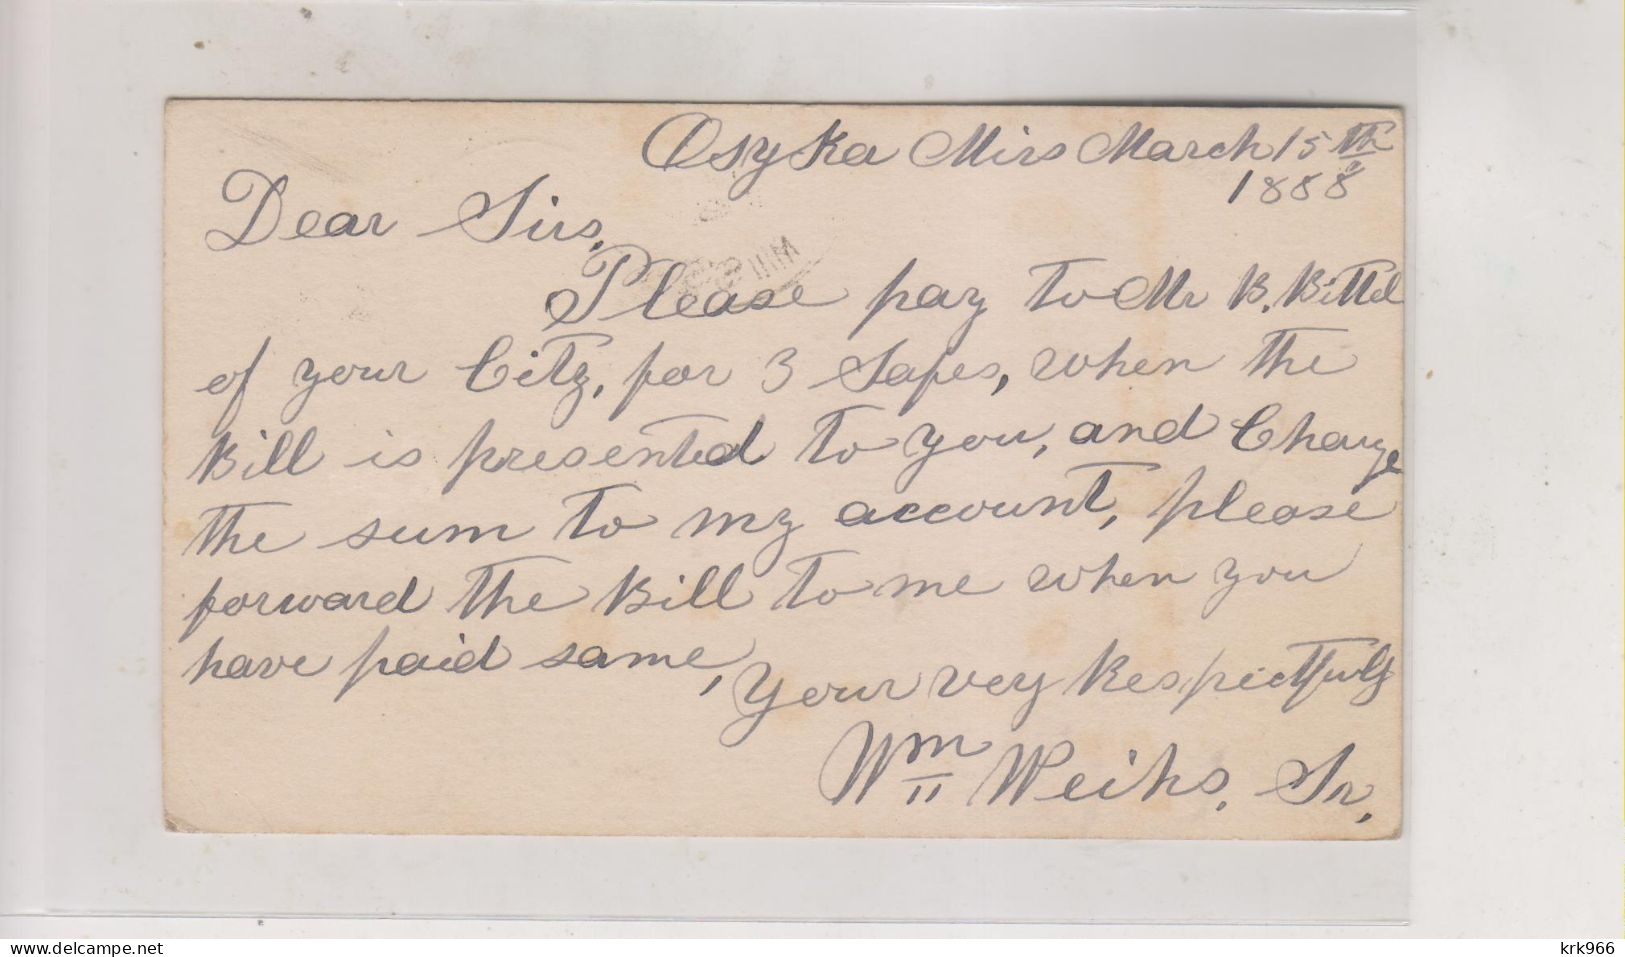 Osyka Miss March 15th
1888
Dear Sirs,
Please pay to Mr B. Bittel
of your City, for 3 Safes, when the
Bill is presented to you, and Charge
the sum to my account, please
forward the Bill to me when you
have paid same,
Your vey Respectfuly
Wm Weihs, Sr,
www.delcampe.net
krk966